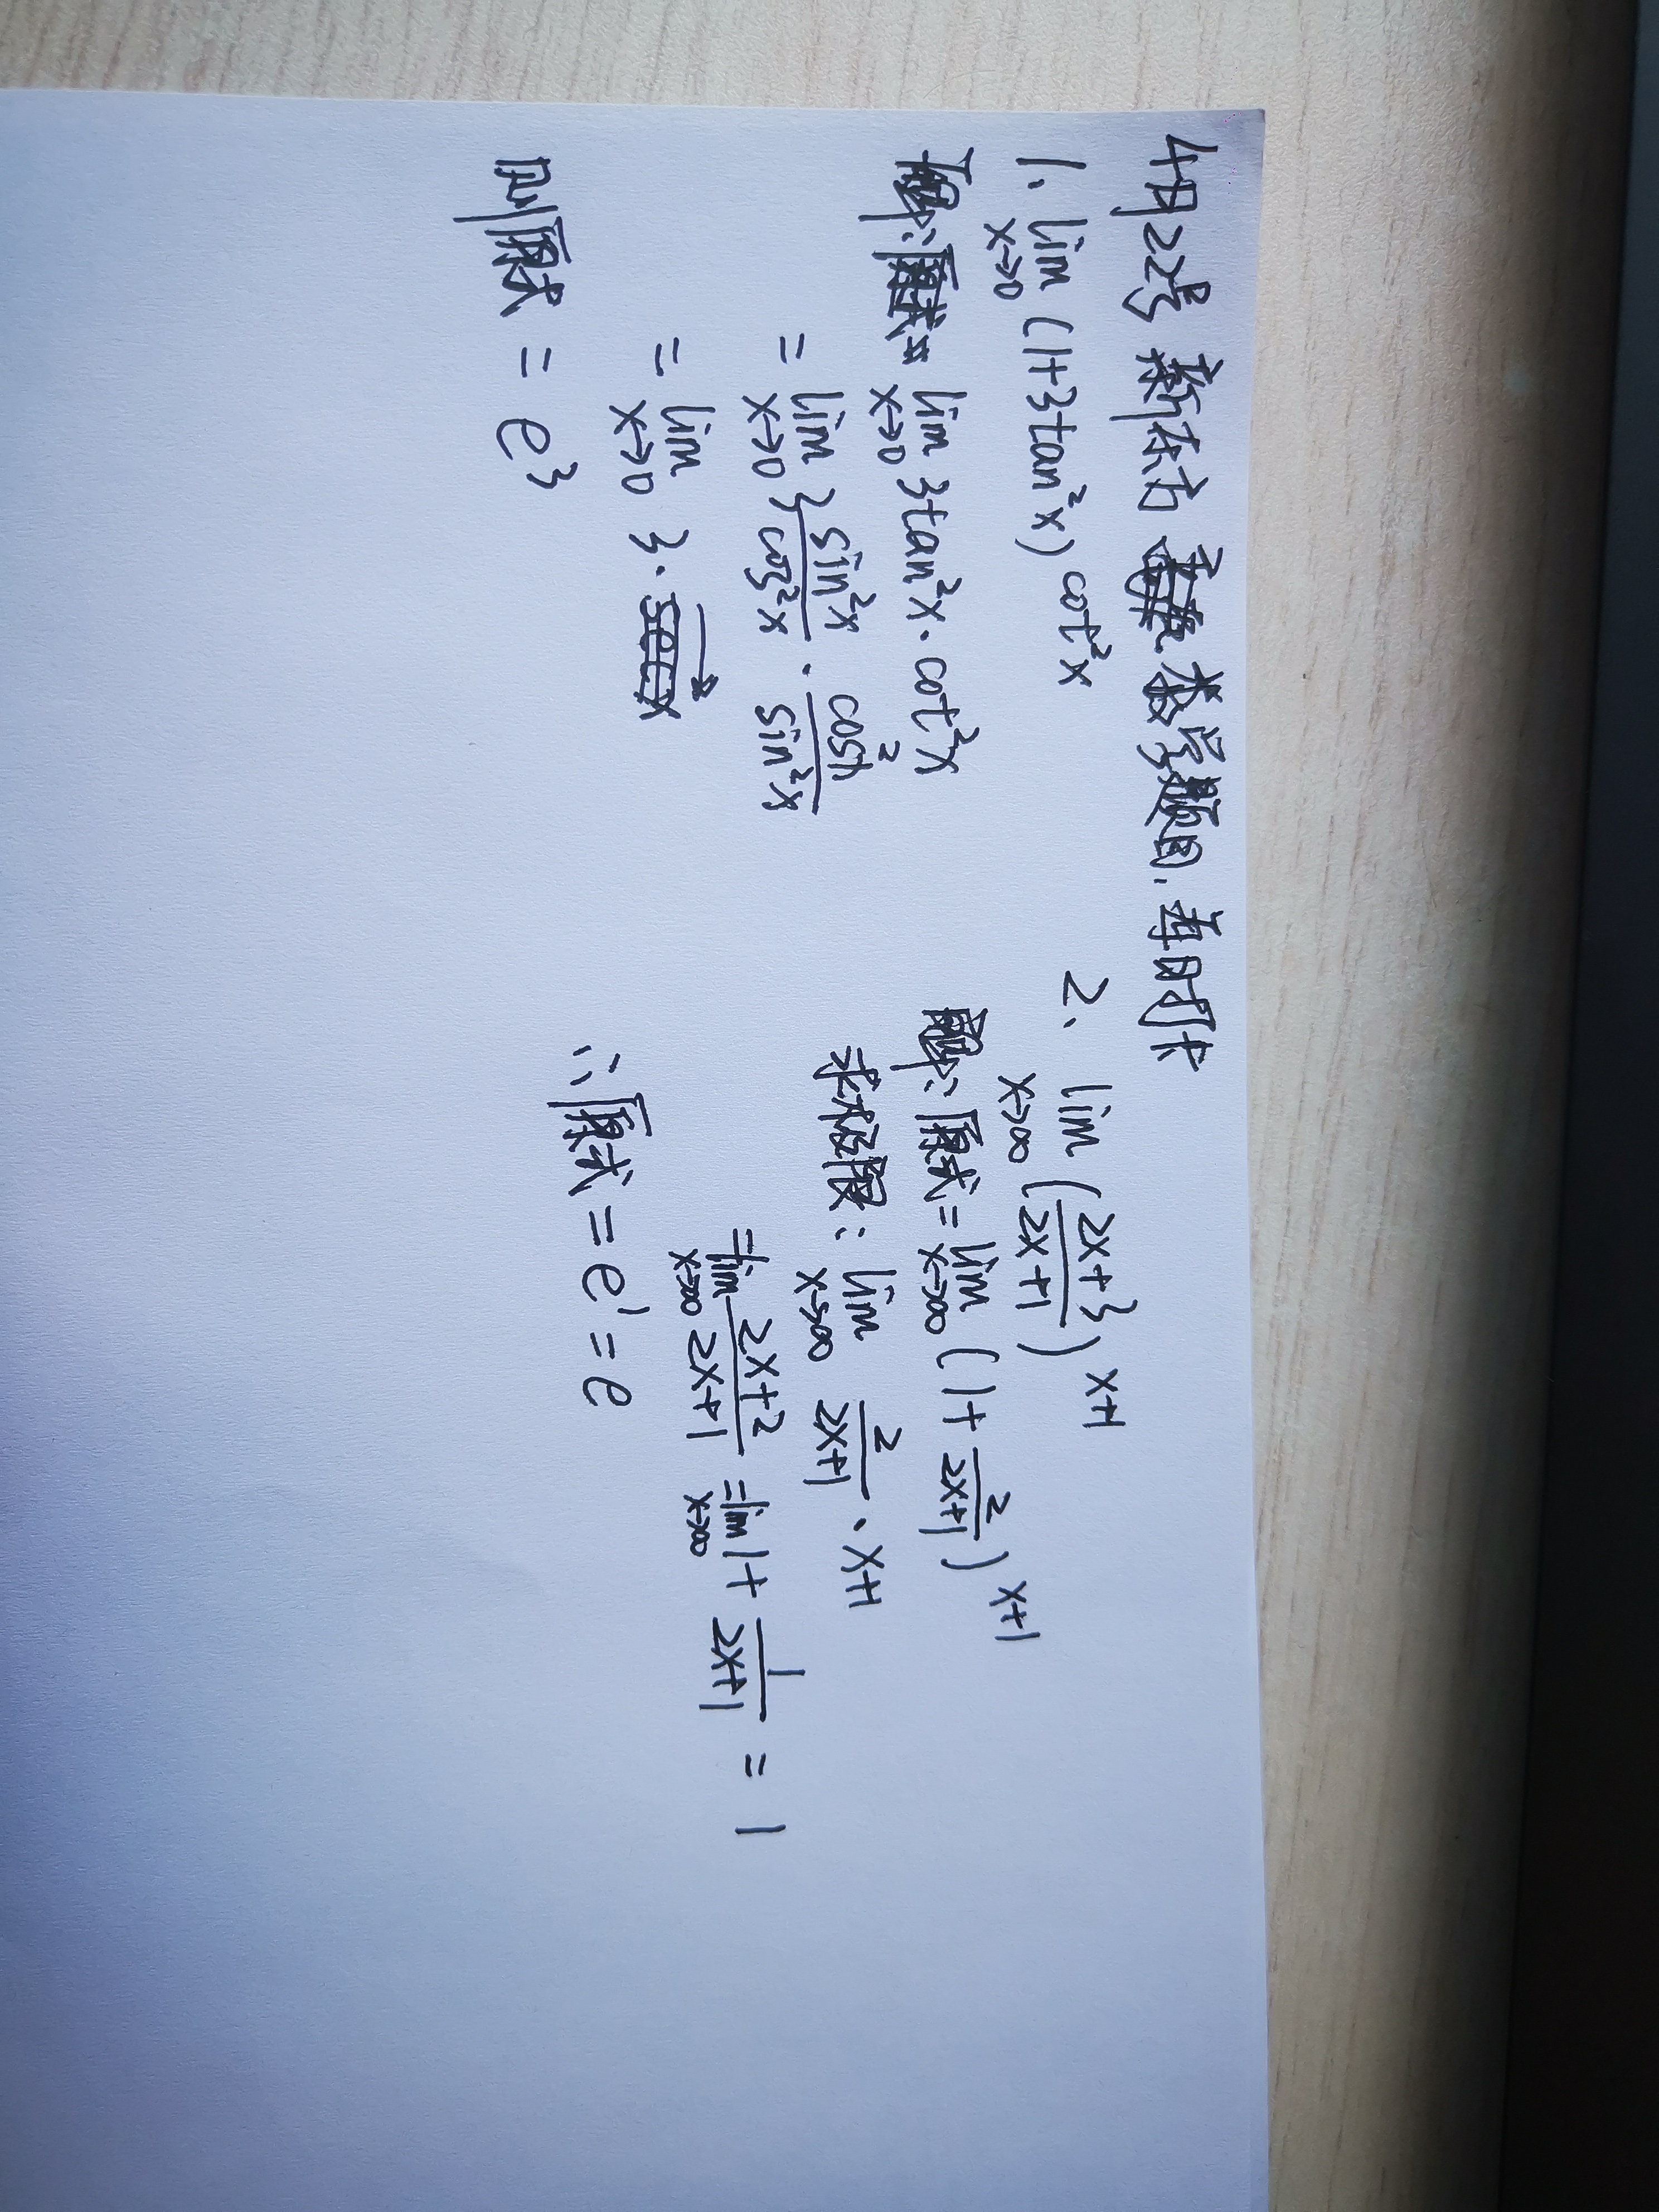 4月22号 新东方 数学题目.每日打卡
1、lim x→0 (1+3tan²x)^cot²x
解: lim x→0 3tan²x·cot²x
= lim x→0 3 sin²x/cos²x · cos²x/sin²x
= lim x→0 3·
则原式 = e³
2、lim x→∞ (2x+3/2x+1)^x+1
解: 原式= lim x→∞ (1+ 2/2x+1)^x+1
求极限: lim x→∞ 2/2x+1 · x+1
= lim x→∞ 2x+2/2x+1 = lim x→∞ 1+ 1/2x+1 = 1
∴原式 = e¹ = e